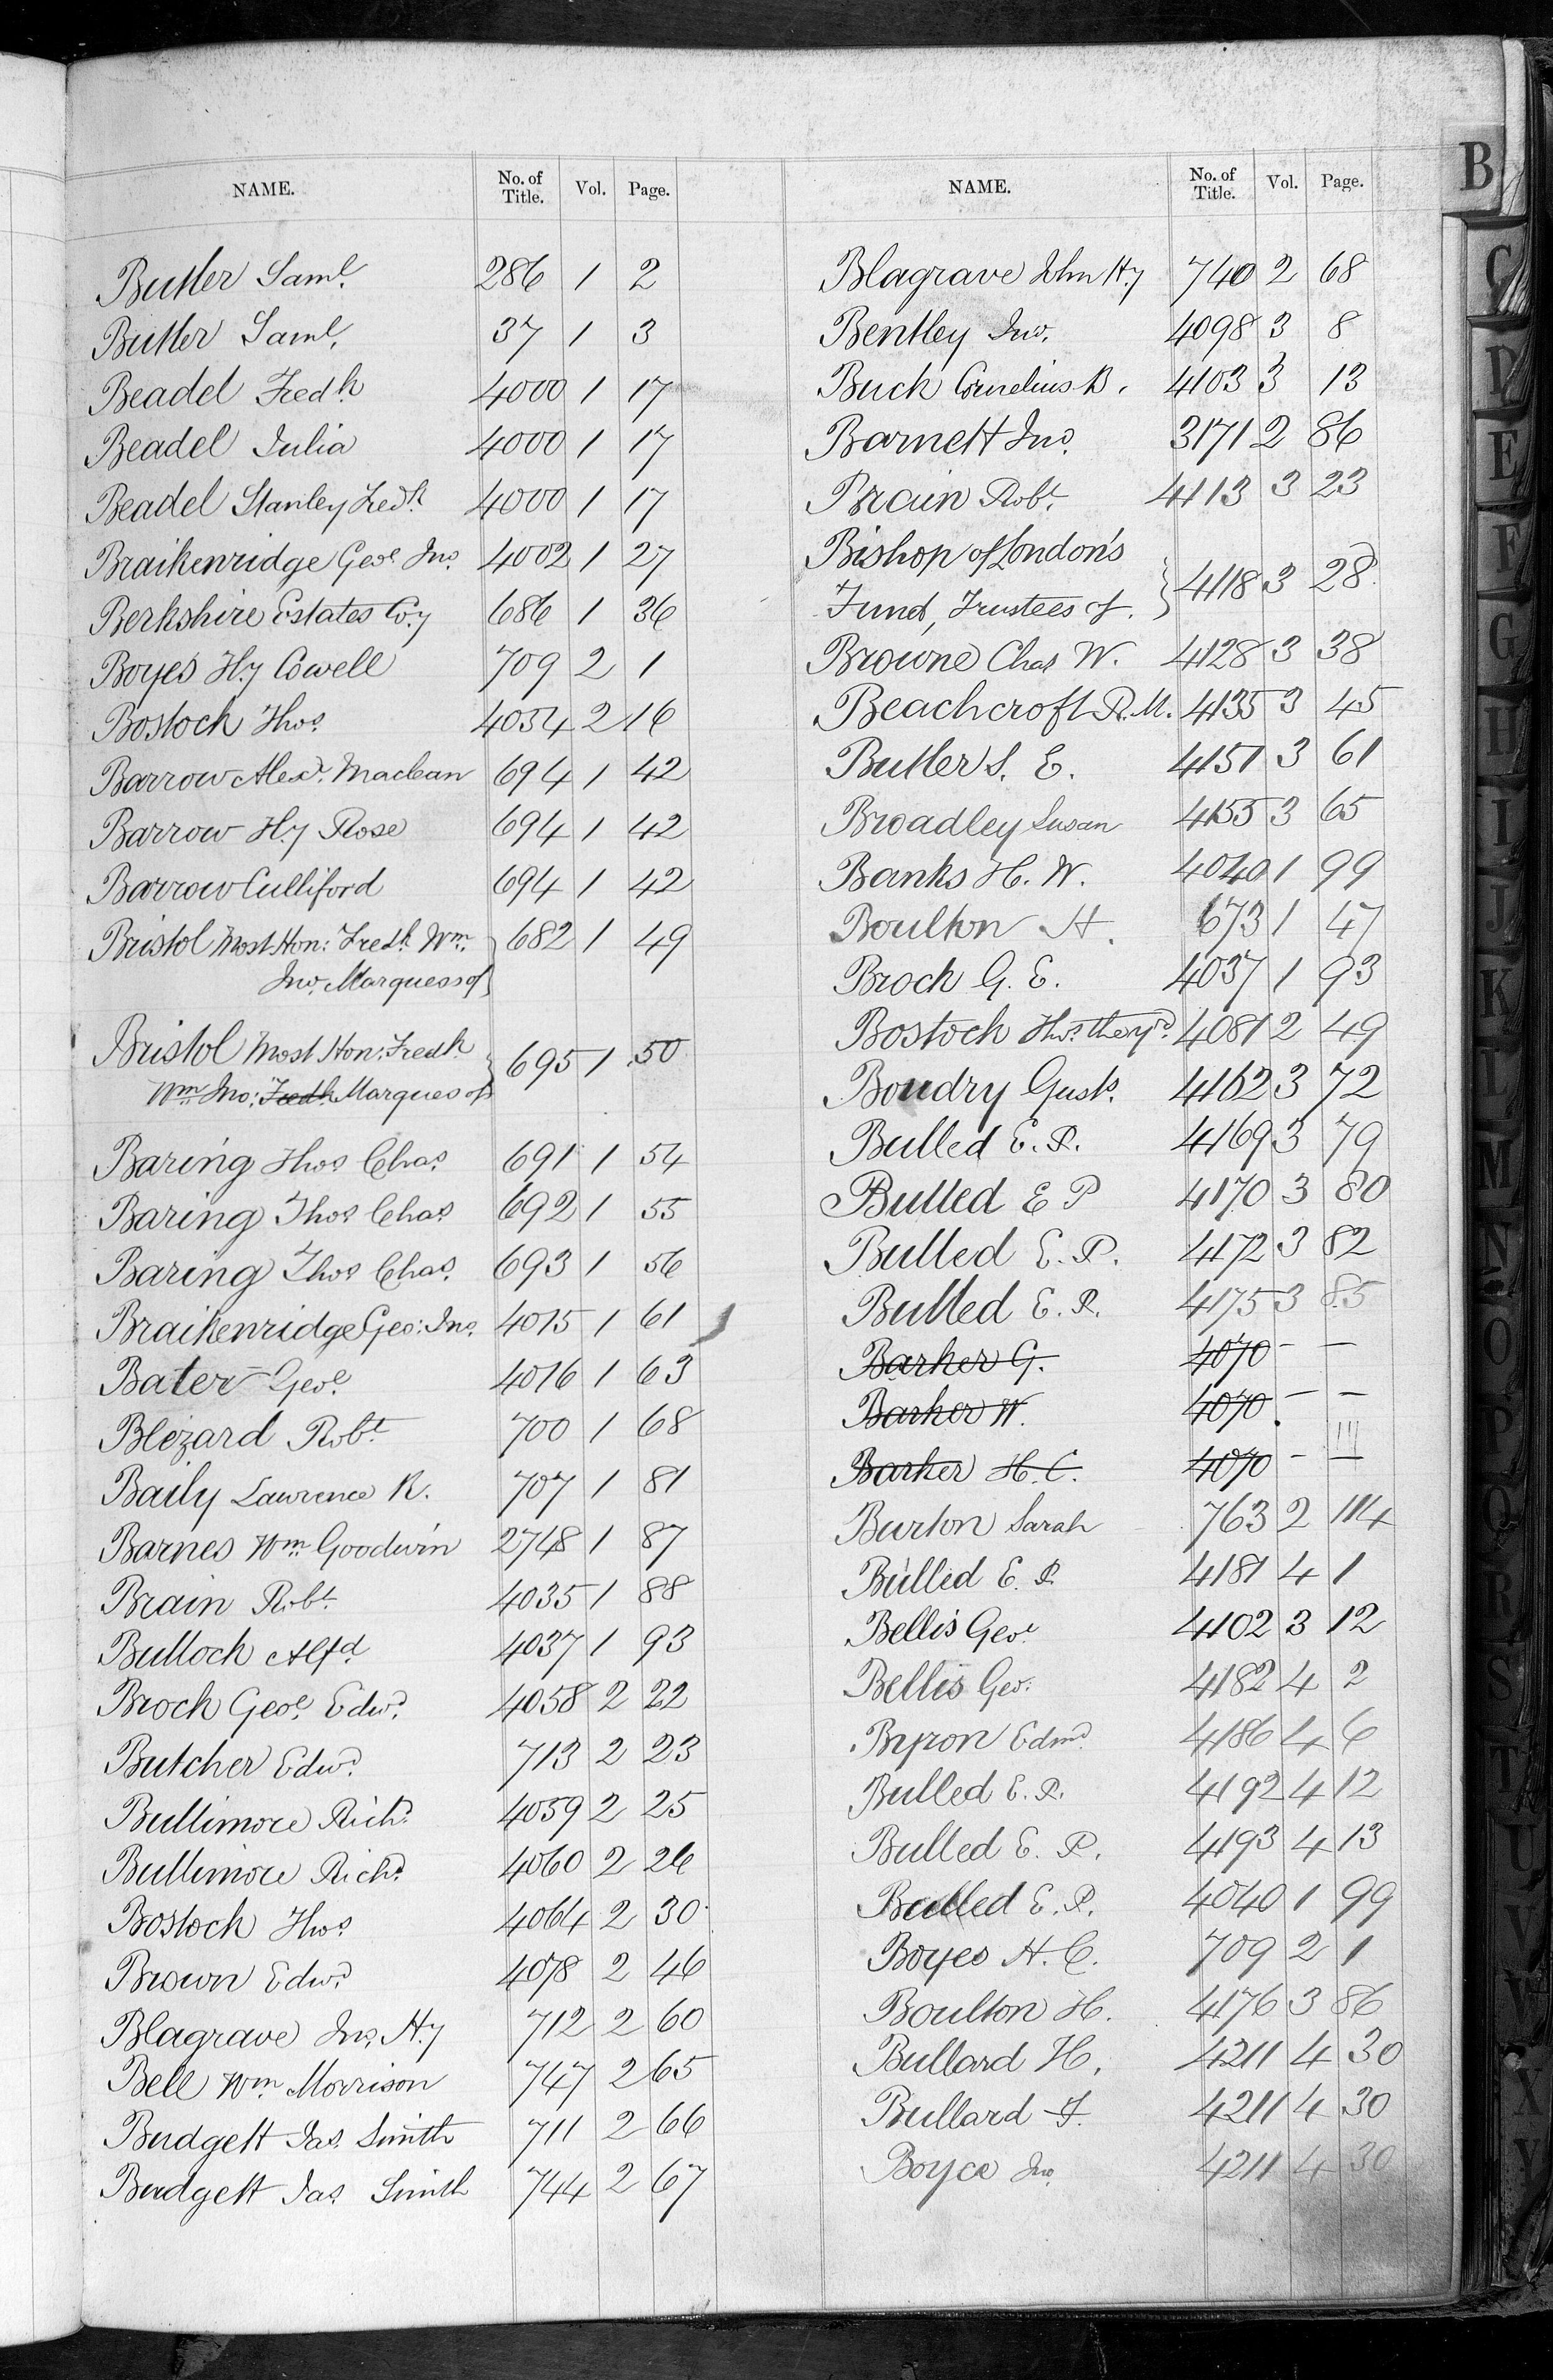 NAME. No. of Title. Vol. Page.
Butler Saml. 286 1 2
Butler Saml. 37 1 3
Beadel Fredk 4000 1 17
Beadel Julia 4000 1 17
Beadel Stanley Fredk 4000 1 17
Braikenridge Geoe Jno. 4002 1 27
Berkshire Estates Coy 686 1 36
Boyes Hy Cowell 709 2 1
Bostock Thos. 4054 2 16
Barrow Alexr. Maclean 694 1 42
Barrow Hy Rose 694 1 42
Barrow Culliford 694 1 42
Bristol Most Hon: Fredk Wm. } 682 1 49
Jno. Marquess of
Bristol Most Hon: Fredk } 695 1 50
Wm Jno: Fredk Marques of
Baring Thos Chas 691 1 54
Baring Thos Chas 692 1 55
Baring Thos Chas. 693 1 56
Braikenridge Geo: Jno. 4015 1 61
Bater Geoe. 4016 1 63
Blezard Robt 700 1 68
Baily Lawrence R. 707 1 81
Barnes Wm Goodwin 2748 1 87
Brain Robt. 4035 1 88
Bulloch Alfd 4037 1 93
Broch Geoe. Edwd. 4058 2 22
Butcher Edwd. 713 2 23
Bullimore Richd. 4059 2 25
Bullimore Richd. 4060 2 26
Bostock Thos 4064 2 30
Brown Edwd 4078 2 46
Blagrave Jno. Hy 712 2 60
Bell Wm Morrison 747 2 65
Budgett Jas. Smith 711 2 66
Budgett Jas. Smith 744 2 67
NAME. No. of Title. Vol. Page.
Blagrave John Hy 740 2 68
Bentley Jno. 4098 3 8
Buck Cornelius B. 4103 3 13
Barnett Jno. 3171 2 86
Brain Robt. 4113 3 23
Bishop of London's
Fund, Trustees of. } 4118 3 28
Browne Chas W. 4128 3 38
Beachcroft R. M. 4135 3 45
Butler S. E. 4151 3 61
Broadley Susan 4155 3 65
Banks H. W. 4040 1 99
Boulton H. 673 1 47
Broch G. E. 4037 1 93
Bostock Thos. 4081 2 49
Boudry Gust. 4162 3 72
Bulled E. P. 4169 3 79
Bulled E P 4170 3 80
Bulled E. P. 4172 3 82
Bulled E. P. 4175 3 85
Barker G. 4070 - -
Barker W. 4070 - -
Barker H. C. 4070 - -
Burton Sarah 763 2 114
Bulled E. P. 4181 4 1
Bellis Geoe 4102 3 12
Bellis Geo. 4182 4 2
Byron Edmd. 4186 4 6
Bulled E. P. 4192 4 12
Bulled E. P. 4193 4 13
Bulled E. P. 4040 1 99
Boyes H. C. 709 2 1
Boulton H. 4176 3 86
Bullard H. 4211 4 30
Bullard F. 4211 4 30
Boyce Jno. 4211 4 30
B
C
D
E
F
G
H
I
J
K
L
M
N
O
P
Q
R
S
T
U
V
W
X
Y